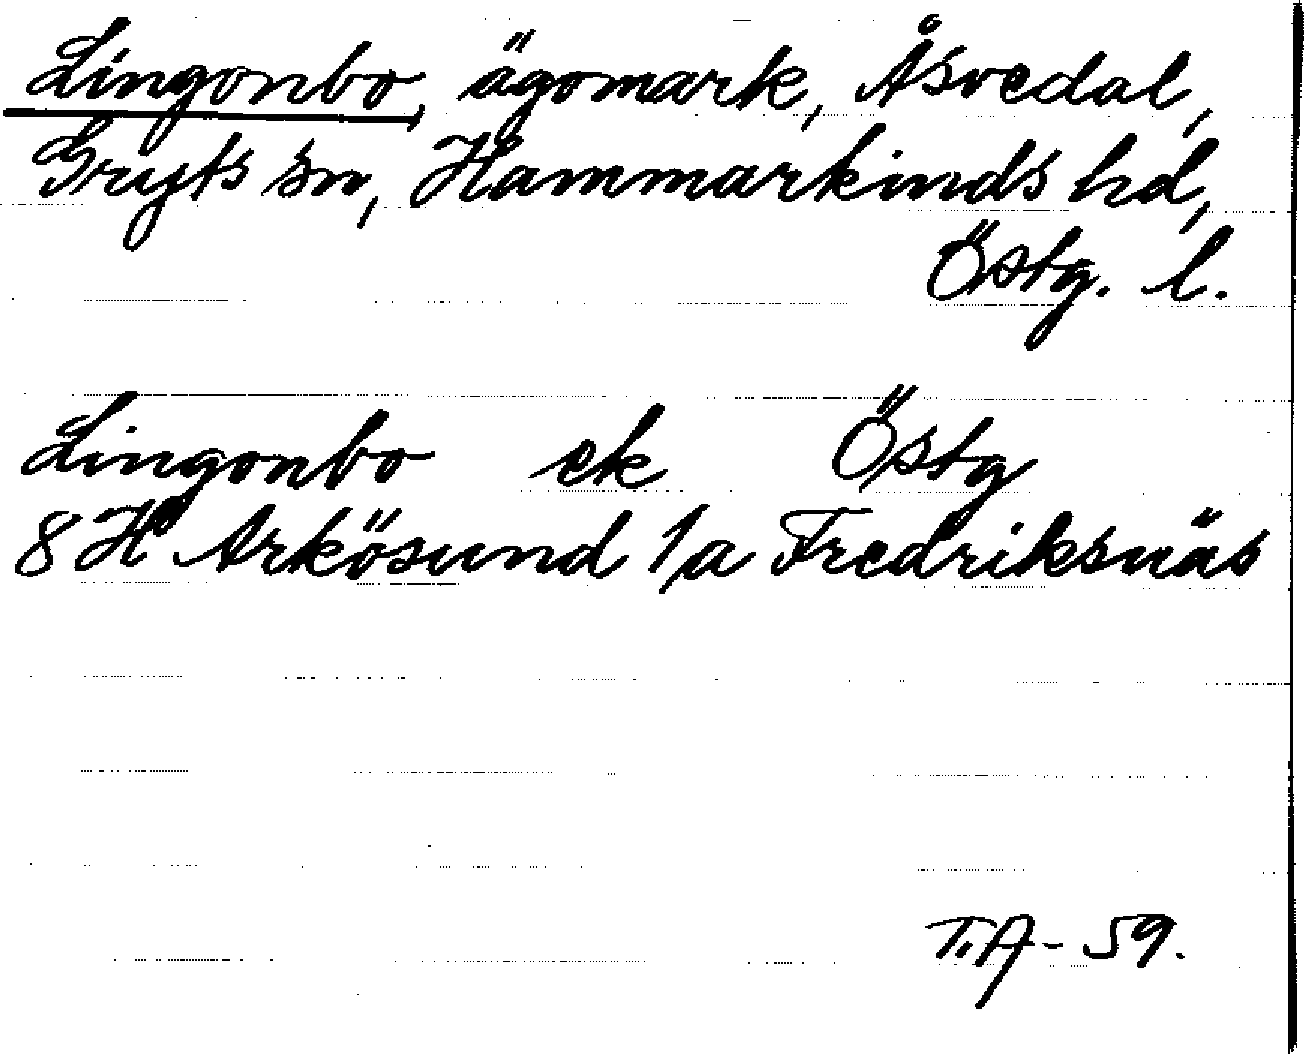 Lingonbo, ägomark, Åsvedal,
Gryts sn, Hammarkinds hd,
Östg. l.
Lingonbo ek Östg
8 H Arkösund 1/a Fredriksnäs
T.A - 59.